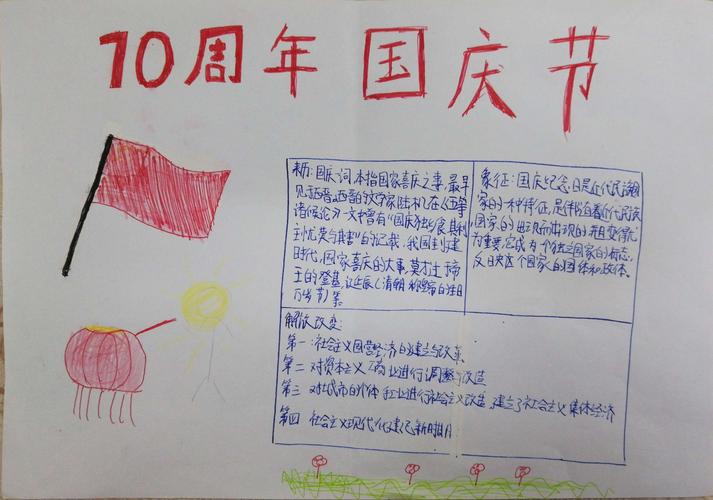 70周年 国庆节
来历:国庆词,本指国家喜庆之事,最早
见西晋。西晋的文学家陆机在《五等
诸侯论》一文中曾有"国庆独 其利
主忧莫与其害"的记载,我国封建
时代,国家喜庆的大事,莫大过 帝
王的登基,诞辰(清朝称皇帝的生日
万岁节)等。
象征:国庆纪念日是近代民族国
家的一种特征,是伴随着近代民族
国家的出现而出现的,并且变得尤
为重要,它成为一个独立国家的标志,
反映这个国家的国体和政体。
解放改变:
第一:社会主义国营经济的建立与改革
第二 对资本主义工商业进行调整与改造
第三 对城市的个体手工业进行社会主义改造,建立了社会主义集体经济
第四 社会主义现代化建设新时期